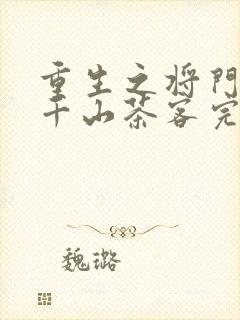 重生之将门
千山茶客完
魏璐